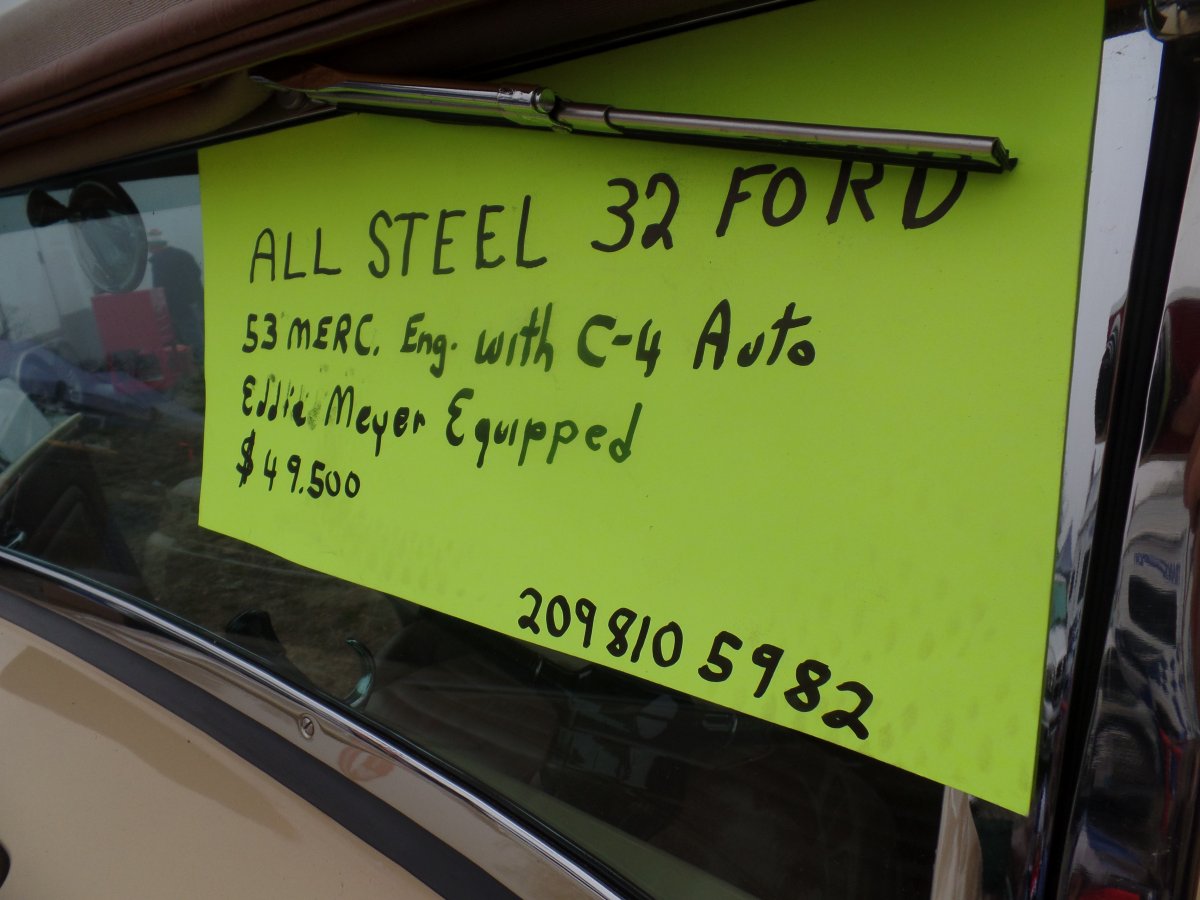 ALL STEEL 32 FORD
53 MERC. Eng. with C-4 Auto
Eddie Meyer Equipped
$49.500
209 810 5982